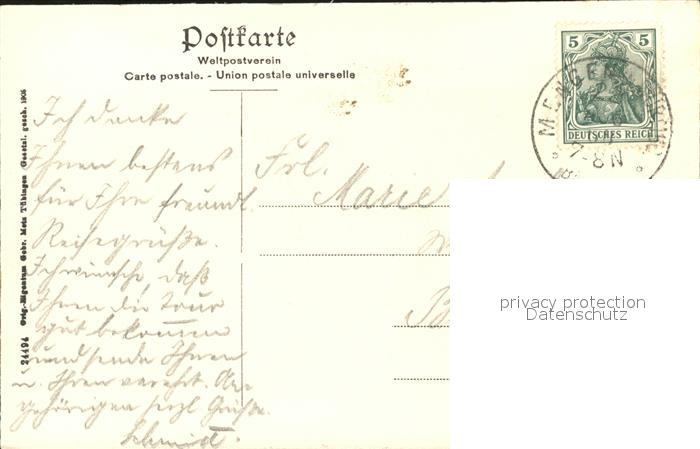 Postkarte
Weltpostverein
Carte postale. - Union postale universelle
24494 Orig.-Eigentum Gebr. Metz Tübingen Gesetzl. gesch. 1905
5 5
DEUTSCHES REICH
MENGEN
7-8N
Ich danke
Ihnen bestens
für Ihre freundl.
Reisegrüße.
Ich wünsche, daß
Ihnen die Tour
gut bekommen
und sende Ihnen
u. Ihren verehrt. An-
gehörigen herzl Grüße.
Schmid.
Frl.
Marie
privacy protection
Datenschutz